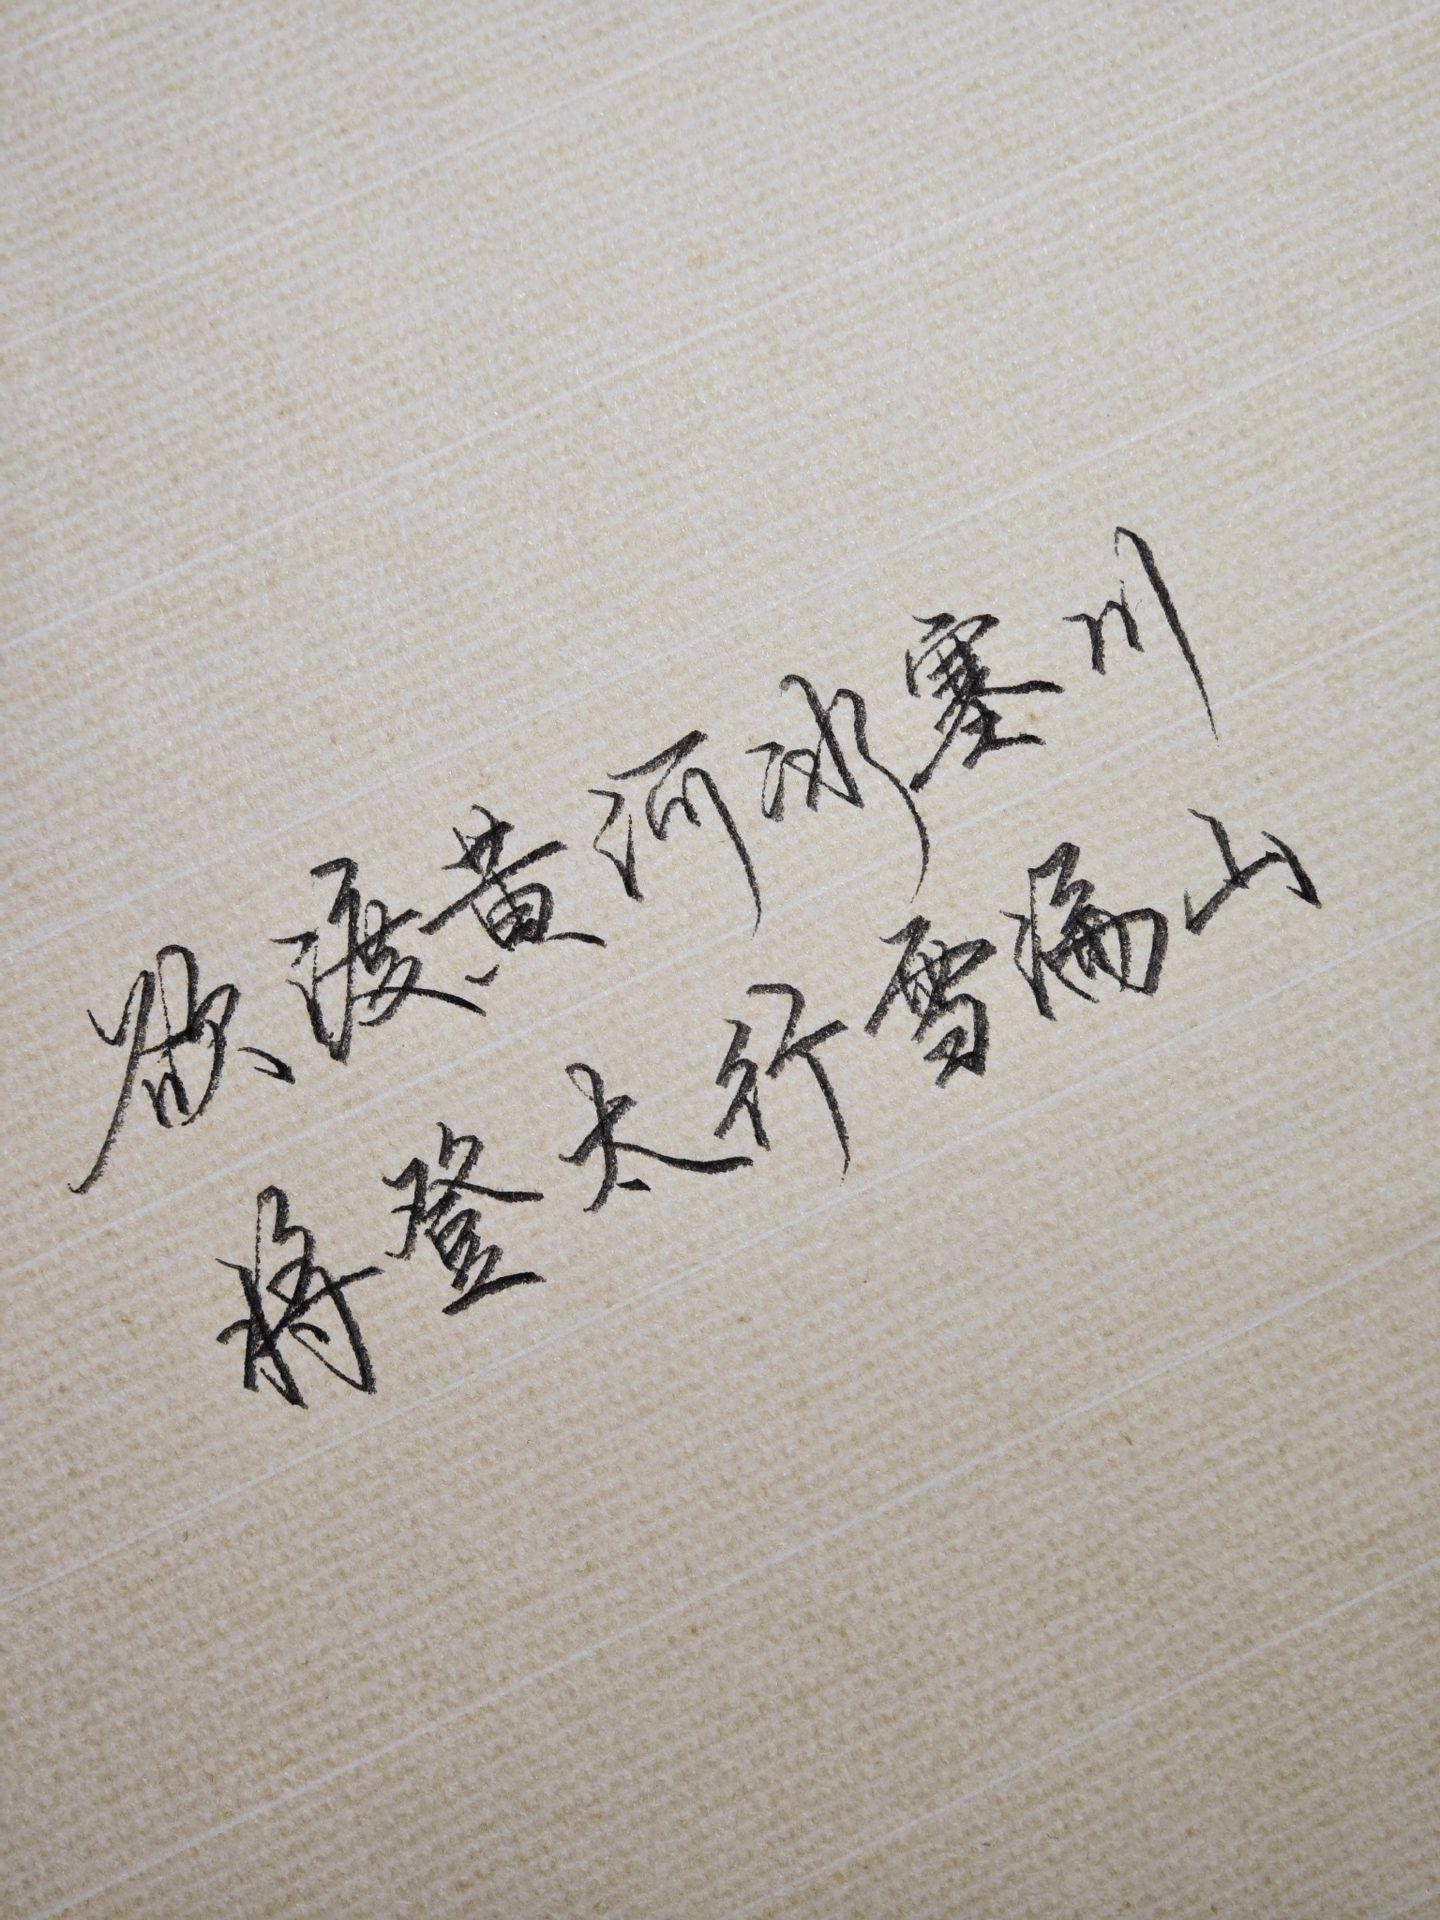 欲渡黄河冰塞川
将登太行雪满山